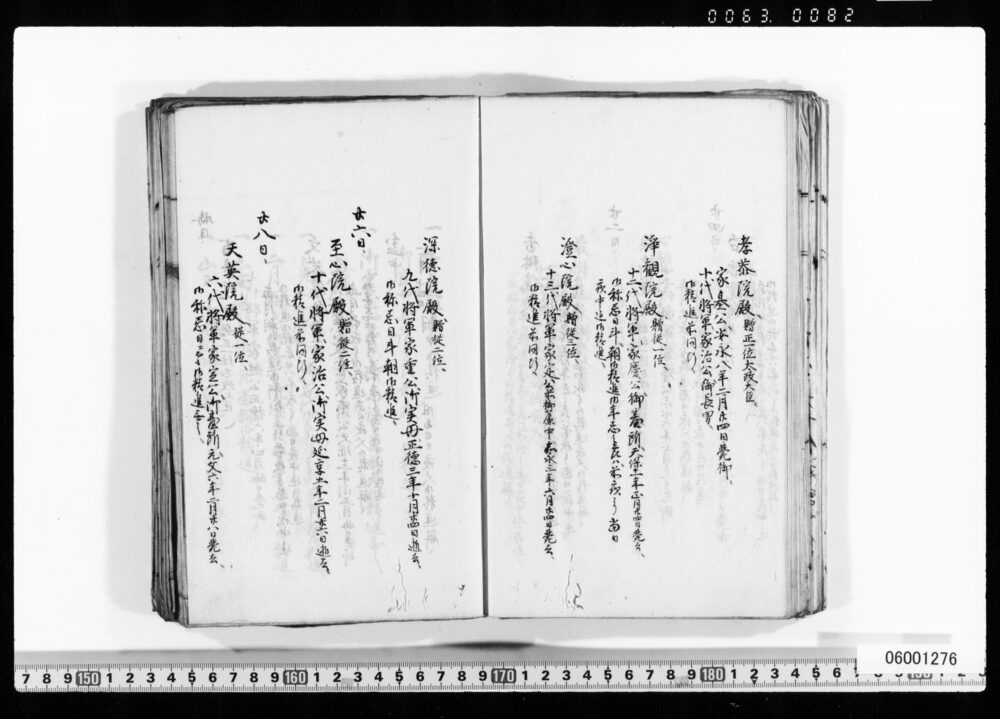 0063. 0082
孝恭院殿 贈正一位太政大臣、
家基公安永八年二月廿四日薨御、
十代将軍家治公御長男、
御精進前同行、
浄観院殿 贈従一位、
十二代将軍家慶公御簾中天保十一年正月廿四日薨去、
御称忌日斗朝御精進御年忌之節ハ前夜より当日
夜中迄御精進、
澄心院殿 贈従三位、
十三代将軍家定公御簾中嘉永三年六月廿四日薨去、
御精進前同行、
深徳院殿 贈従二位、
九代将軍家重公御実母正徳三年十月廿四日逝去、
御称忌日斗朝御精進、
廿六日、
至心院殿 贈従二位、
十代将軍家治公御実母延享五年二月廿六日逝去、
御精進前同行、
廿八日、
天英院殿 従一位、
六代将軍家宣公御簾中元文六年二月廿八日薨去、
御称忌日ニ而も御精進無之、
7 8 9 150 1 2 3 4 5 6 7 8 9 160 1 2 3 4 5 6 7 8 9 170 1 2 3 4 5 6 7 8 9 180 1 2 3 4 5 6
06001276